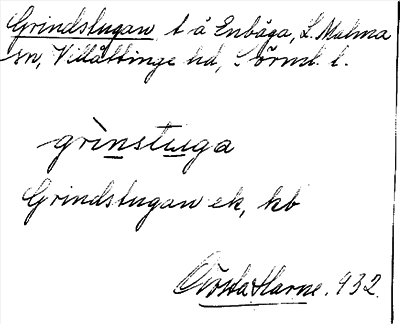 Grindstugan t å Enbåga, L. Malma
sn, Villåttinge hd, Sörml. l.
grìnstuga
Grindstugan ek, kb
Gösta Harne. 932